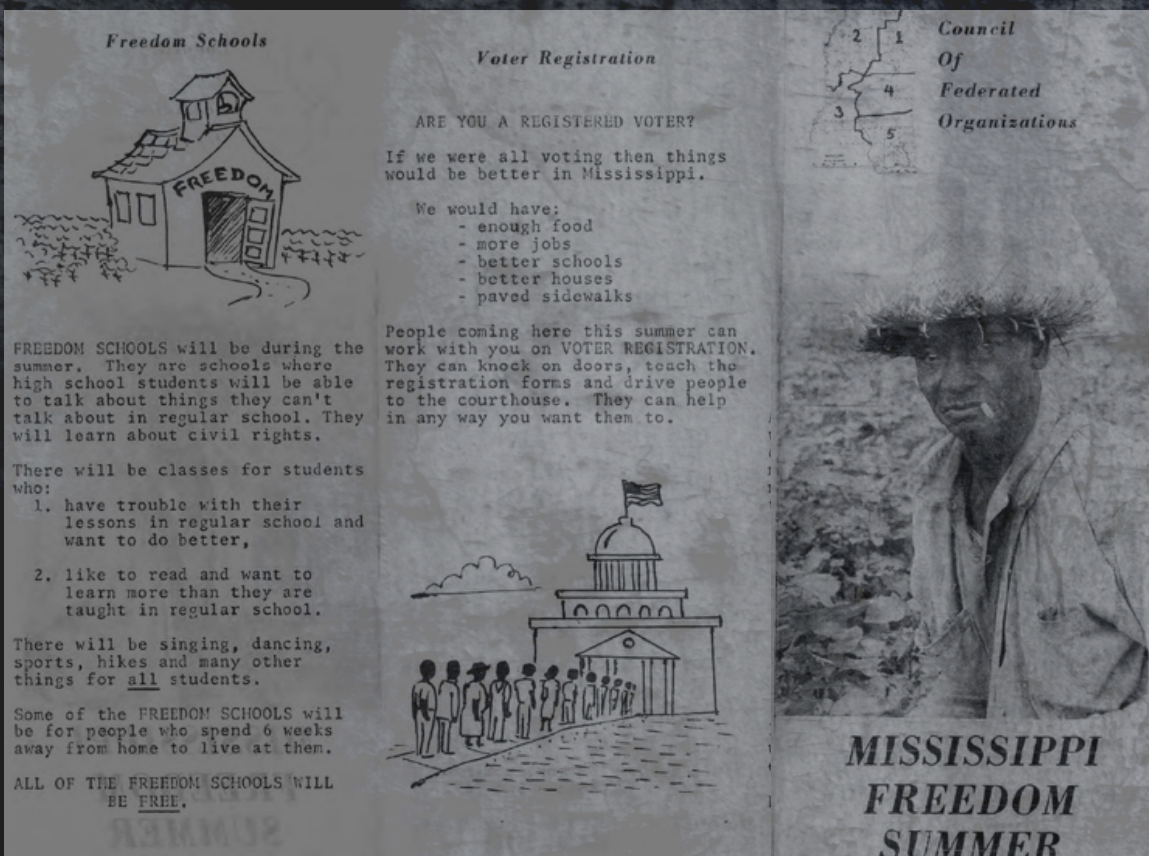 Freedom Schools
FREEDOM
FREEDOM SCHOOLS will be during the
summer. They are schools where
high school students will be able
to talk about things they can't
talk about in regular school. They
will learn about civil rights.
There will be classes for students
who:
1. have trouble with their
lessons in regular school and
want to do better,
2. like to read and want to
learn more than they are
taught in regular school.
There will be singing, dancing,
sports, hikes and many other
things for all students.
Some of the FREEDOM SCHOOLS will
be for people who spend 6 weeks
away from home to live at them.
ALL OF THE FREEDOM SCHOOLS WILL
BE FREE.
Voter Registration
ARE YOU A REGISTERED VOTER?
If we were all voting then things
would be better in Mississippi.
We would have:
- enough food
- more jobs
- better schools
- better houses
- paved sidewalks
People coming here this summer can
work with you on VOTER REGISTRATION.
They can knock on doors, teach the
registration forms and drive people
to the courthouse. They can help
in any way you want them to.
2 1
4
3
5
Council
Of
Federated
Organizations
MISSISSIPPI
FREEDOM
SUMMER